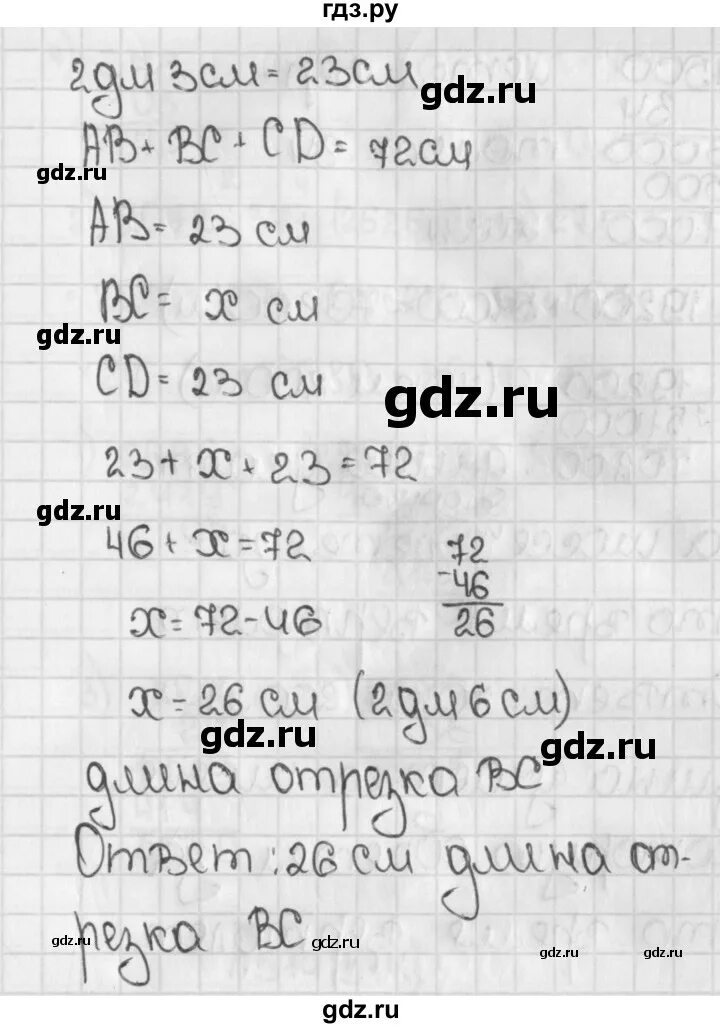 гдз.ру
2дм 3см = 23см
gdz.ru
AB + BC + CD = 72см
gdz.ru
AB = 23 см
BC = x см
gdz.ru
CD = 23 см
gdz.ru
23 + x + 23 = 72
gdz.ru
46 + x = 72
72
-46
26
x = 72 - 46
x = 26 см (2дм 6см)
gdz.ru
gdz.ru
длина отрезка BC
Ответ: 26 см длина от-
резка BC
gdz.ru
gdz.ru
gdz.ru
gdz.ru
gdz.ru